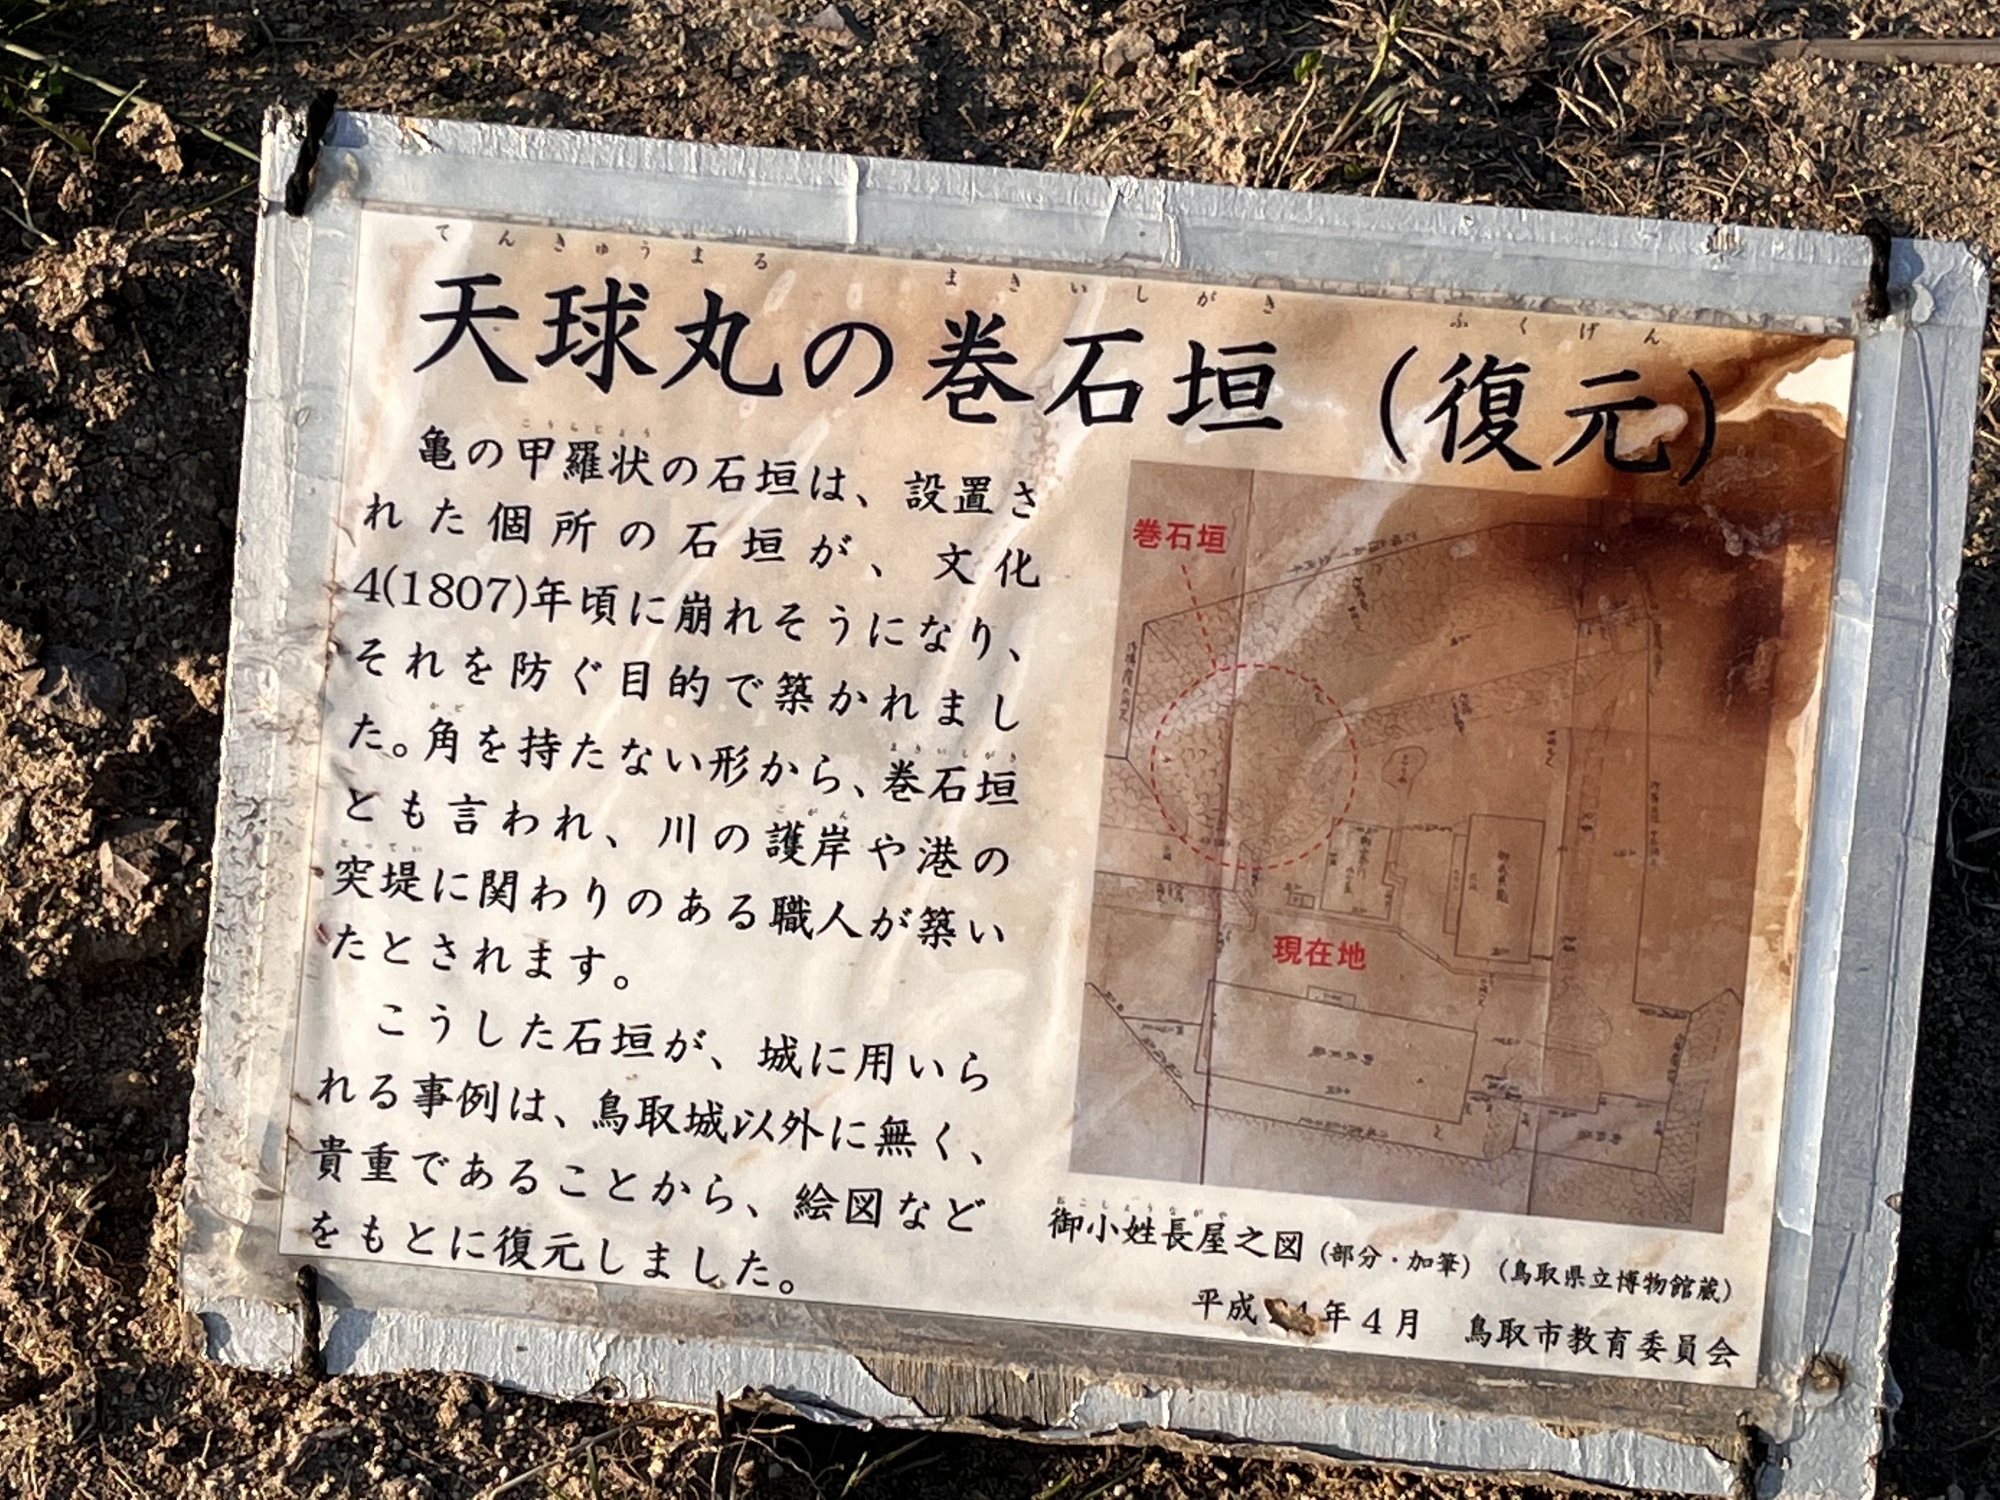 てんきゅうまる まきいしがき ふくげん
天球丸の巻石垣（復元）
こうらじょう
亀の甲羅状の石垣は、設置さ
れた個所の石垣が、文化
4(1807)年頃に崩れそうになり、
それを防ぐ目的で築かれまし
かど まきいしがき
た。角を持たない形から、巻石垣
ごがん
とも言われ、川の護岸や港の
とってい
突堤に関わりのある職人が築い
たとされます。
こうした石垣が、城に用いら
れる事例は、鳥取城以外に無く、
貴重であることから、絵図など
をもとに復元しました。
巻石垣
現在地
おこしょうながや
御小姓長屋之図（部分・加筆）（鳥取県立博物館蔵）
平成 年4月 鳥取市教育委員会